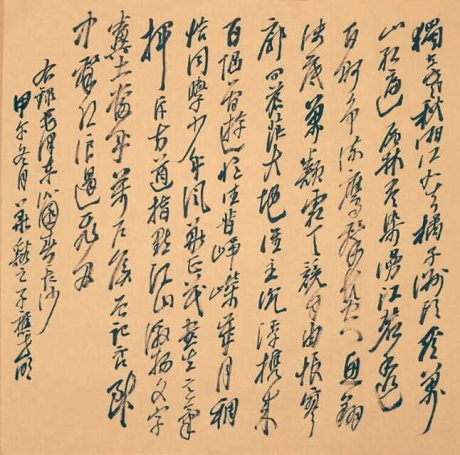 獨立寒秋湘江北去橘子洲頭看萬
山紅遍層林盡染漫江碧透
百舸爭流鷹擊長空魚翔
淺底萬類霜天競自由悵寥
廓問蒼茫大地誰主沉浮攜來
百侶曾遊憶往昔崢嶸歲月稠
恰同學少年風華正茂書生意氣
揮斥方遒指點江山激揚文字
糞土當年萬戶侯曾記否到
中擊水浪遏飛舟
右錄毛澤東沁園春長沙
甲午冬月